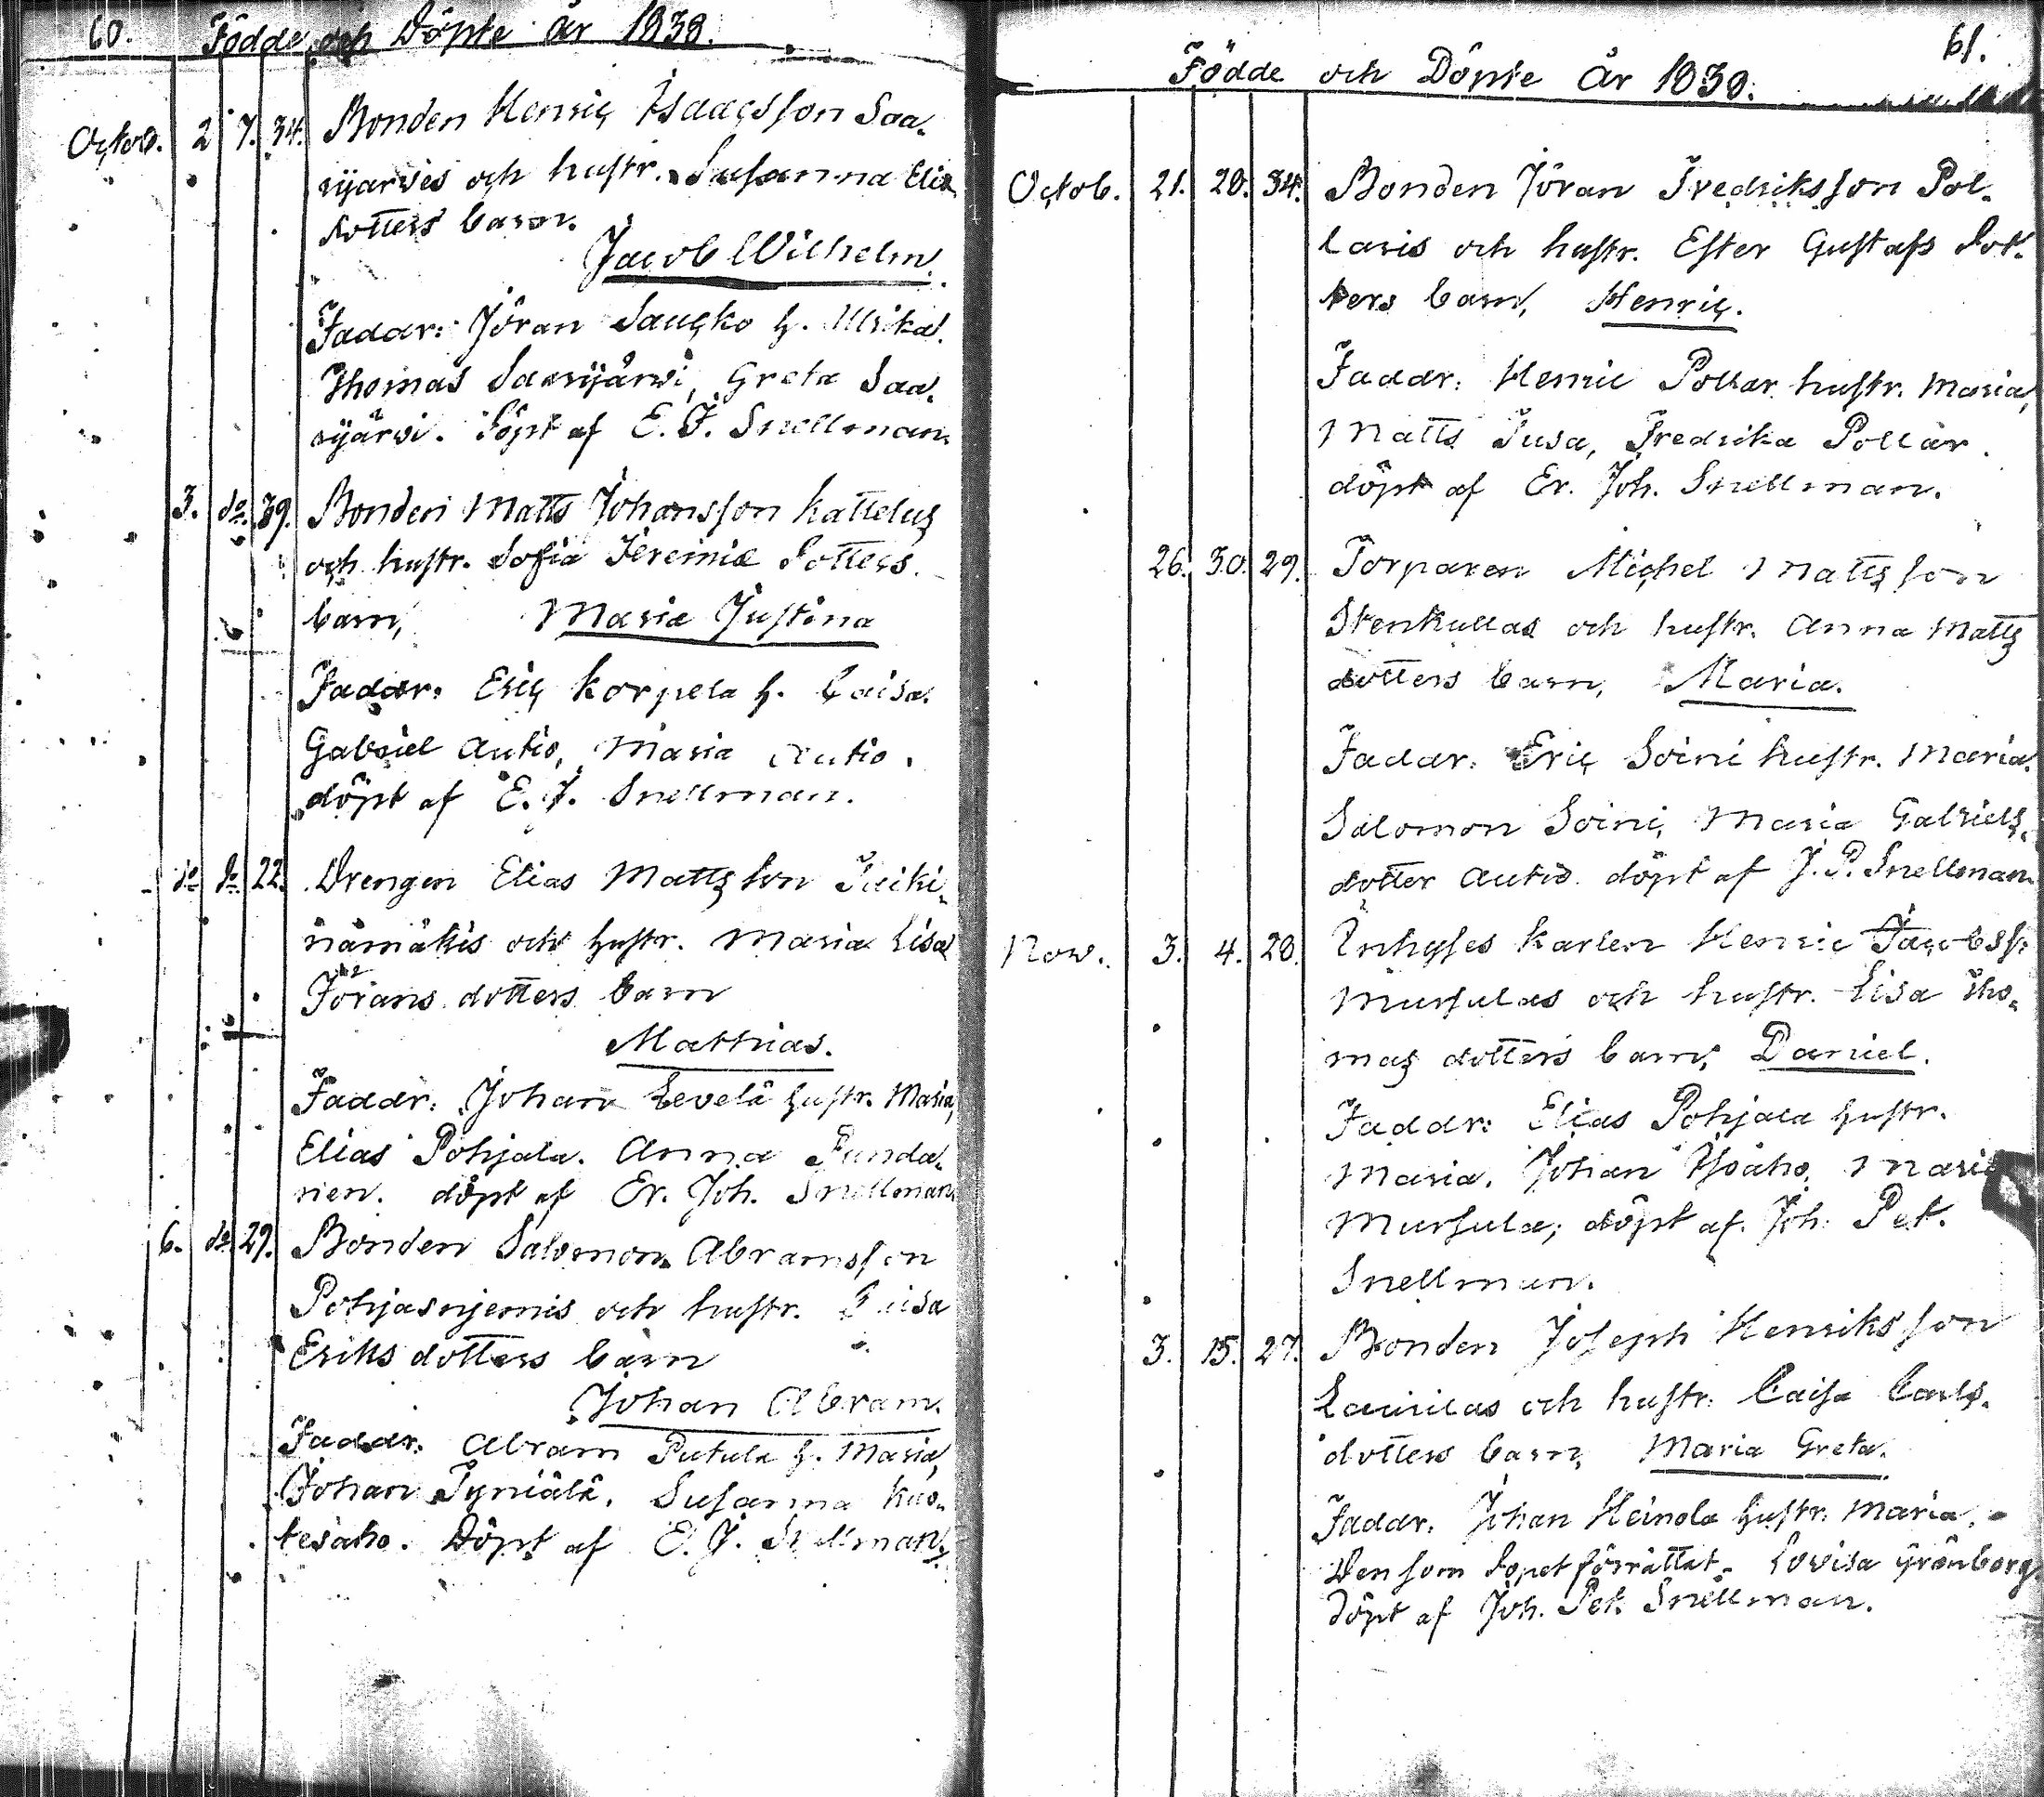 60. Födde och Döpte år 1838.
Octob. 2 7. 34. Bonden Henriç Isaaçsson Saa-
rijärvis och hustr. Susanna Elias
dotters barn.
Jacob Wilhelm.
Faddr: Jöran Sauçko h. Ulrika.
Thomas Saarijärwi, Greta Saa-
rijärvi. Döpt af E. J. Snellman.
3. do. 39. Bonden Matts Johansson Kattelus
och hustr. Sofia Jeremiæ Dotters.
barn, Maria Justina
Faddr: Eriç Korpela h. Caisa.
Gabriel Autio, Maria Autio.
döpt af E. J. Snellman.
do do 22. Drengen Elias Mattsson
nämäkis och hustr. Maria Lisa
Jörans dotters barn
Matthias.
Faddr: Johan Levelä hustr. Maria,
Elias Pohjala. Anna Junda-
nen. döpt af Er. Joh. Snellman.
6. do 29. Bonden Salomon Abramsson
och hustr. Caisa
Eriks dotters barn
Johan Abram.
Faddr. Abram Putula h. Maria,
Johan Tyniälä. Susanna Kuo-
tesaho. Döpt af E. J. Snellman.
61.
Födde och Döpte År 1838.
Octob. 21. 28. 34. Bonden Jöran Fredriksson Pol-
laris och hustr. Ester Gustafs Dot-
ters barn, Henriç.
Faddr: Henric Pollar hustr. Maria,
Matts Tusa, Fredrika Pollar.
döpt af Er. Joh. Snellman.
26. 30. 29. Torparen Michel Mattsson
Stenkullas och hustr. Anna Matts
dotters barn, Maria.
Faddr: Eriç Soini hustr. Maria.
Salomon Soini, Maria Gabriels-
dotter Autio. döpt af J. P. Snellman
Now. 3. 4. 28. Inhyses Karlen Henric Jacobss:
Mursulas och hustr. Lisa Tho-
mas dotters barn, Daniel.
Faddr: Elias Pohjala hustr.
Maria. Johan Isoaho, Maria
Mursula; döpt af. Joh. Pet.
Snellman.
3. 15. 27. Bonden Joseph Henriksson
Laurilas och hustr. Caisa Carls-
dotters barn, Maria Greta.
Faddr. Johan Heinola hustr. Maria.
Den som Dopet förrättat. Lovisa Grönborg
Döpt af Joh. Pet. Snellman.